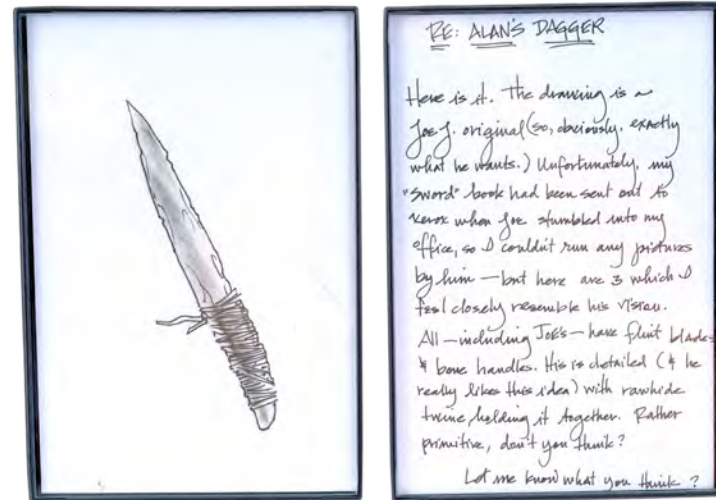 RE: ALAN'S DAGGER
Here is it. The drawing is a
Joe J. original (so, obviously, exactly
what he wants.) Unfortunately, my
"sword" book had been sent out to
Xerox when Joe stumbled into my
office, so I couldn't run any pictures
by him — but here are 3 which I
feel closely resemble his vision.
All — including JOE'S — have flint blades
& bone handles. His is detailed (& he
really likes this idea) with rawhide
twine holding it together. Rather
primitive, don't you think?
Let me know what you think?